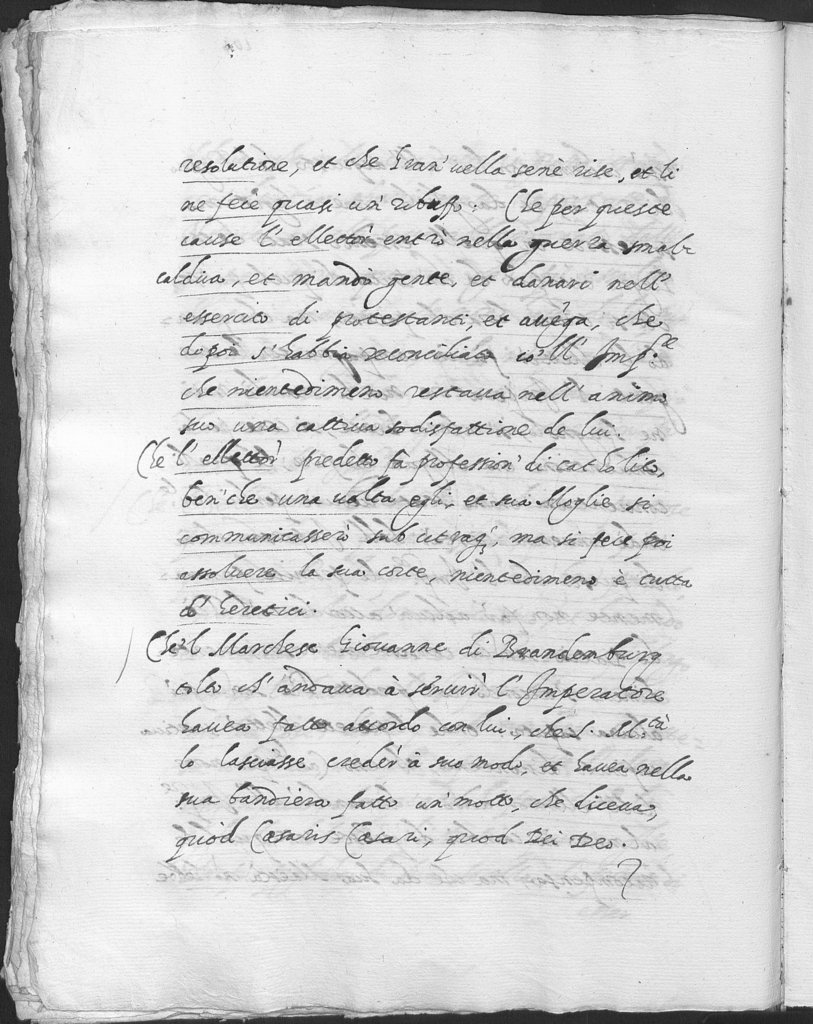 resolutione, et che Gran'uella senè rise, et li
ne fece quasi un' rebuffo: Che per queste
cause l' ellettor' entrò nella guerra smal-
caldica, et mandò gente, et danari nell'
essercito di protestanti, et auẽga, che
dopoi s' habbia reconciliato cõ 'll Imp.re
che nientedimeno restaua nell' animo
suo una cattiua sodisfattione de lui.
Che l' ellettor' predetto fà profession' di catholico,
ben'che una uolta egli, et sua Moglie si
communicasserò sub utraq₃, ma si fece poi
assoluere la sua corte, nientedimeno è tutta
d' heretici.
Che'l Marchese Giouanne di Brandenburg
che ch' andaua à seruir' l' Imperatore
hauea fatto accordo con lui, che S. M.tà
lo lasciasse creder' à suo modo, et hauea nella
sua bandiera fatto un' motto, che diceua,
quod Cæsaris Cæsari, quod Dei Deo.